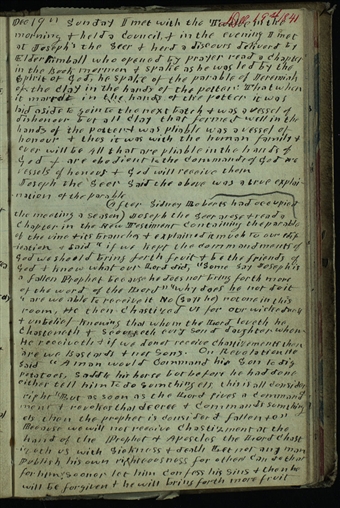 Dec 19th 1841
Dec 19th Sunday I met with the Twelve in the
morning & held council, & in the evening I met
at Joseph the Seer & herd a discours deliverd by
Elder Kimball who opened by prayer read a chapter
in the Book mormon & spake as he was led by the
Spirit of God, he spake of the parable of Jeremiah
of the clay in the hands of the potter. That when
it marred in the hands of the potter it was
laid aside to go into the next batch & was a vessel of
dishonour but all clay that formed well in the
hands of the potter & was pliable was a vessel of
honour & thus it was with the human family &
ever will be all that are pliable in the hands of
God & are obedient to the commands of God are
vessels of honour & God will receive them
Joseph the Seer said the above was a true explai-
nation of the parable
After Sidney Roberts had occupied
the meeting a season) Joseph the Seer arose & read a
Chapter in the New Testament containing the parable
of the vine & its branches & explained it much to our edi-
fication & said "if we kept the commandments of
God we should bring forth fruit & be the friends of
God & know what our Lord did, "Some say Joseph is
a fallen Prophet because he does not bring forth more
of the word of the Lord" "why does he not do it"
"are we able to receive it No (says he) not one in this
room, He then chastized us for our wickedness
& unbelief knowing that whom the Lord loveth he
chasteneth & scourgeth evry son & daughter whom
he receiveth & if we do not receive chastizements then
are we bastards & not Sons. On Revelation He
said "A man would command his son to dig
potatoes, saddle his horse but before he had done
either tell him to do something els this is all conside-
red right But as soon as the Lord gives a command-
ment & revokes that decree & commands something
els then the prophet is considerd fallen &c
Because we will not receive chastizment at the
hand of the Prophet & Apostles the Lord chast-
iseth us with sickness & death Let not any man
publish his own righteousness for others can do that
for him, sooner let him confess his sins & then he
will be forgiven & he will bring forth more fruit